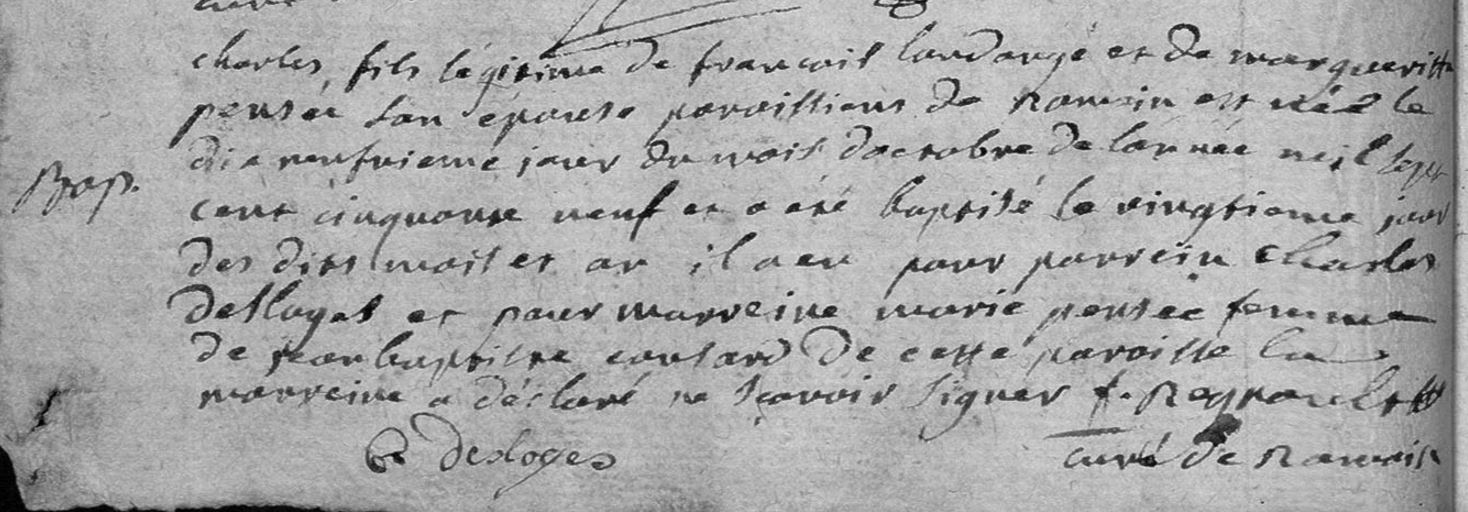 charles, fils légitime de francois landange et de margueritte
pensée son épouse paroissiens de est née le
dix neufvieme jour du mois doctobre de lannée mil sept
Bap.
cent cinquante neuf et a été baptisé le vingtieme jour
des dits mois et an il a eu pour parrein Charles
desloges et pour marreine marie pensée femme
de jean baptiste contard de cette paroisse la
marreine a déclaré ne scavoir signer f. Regnault
C Desloges curé de